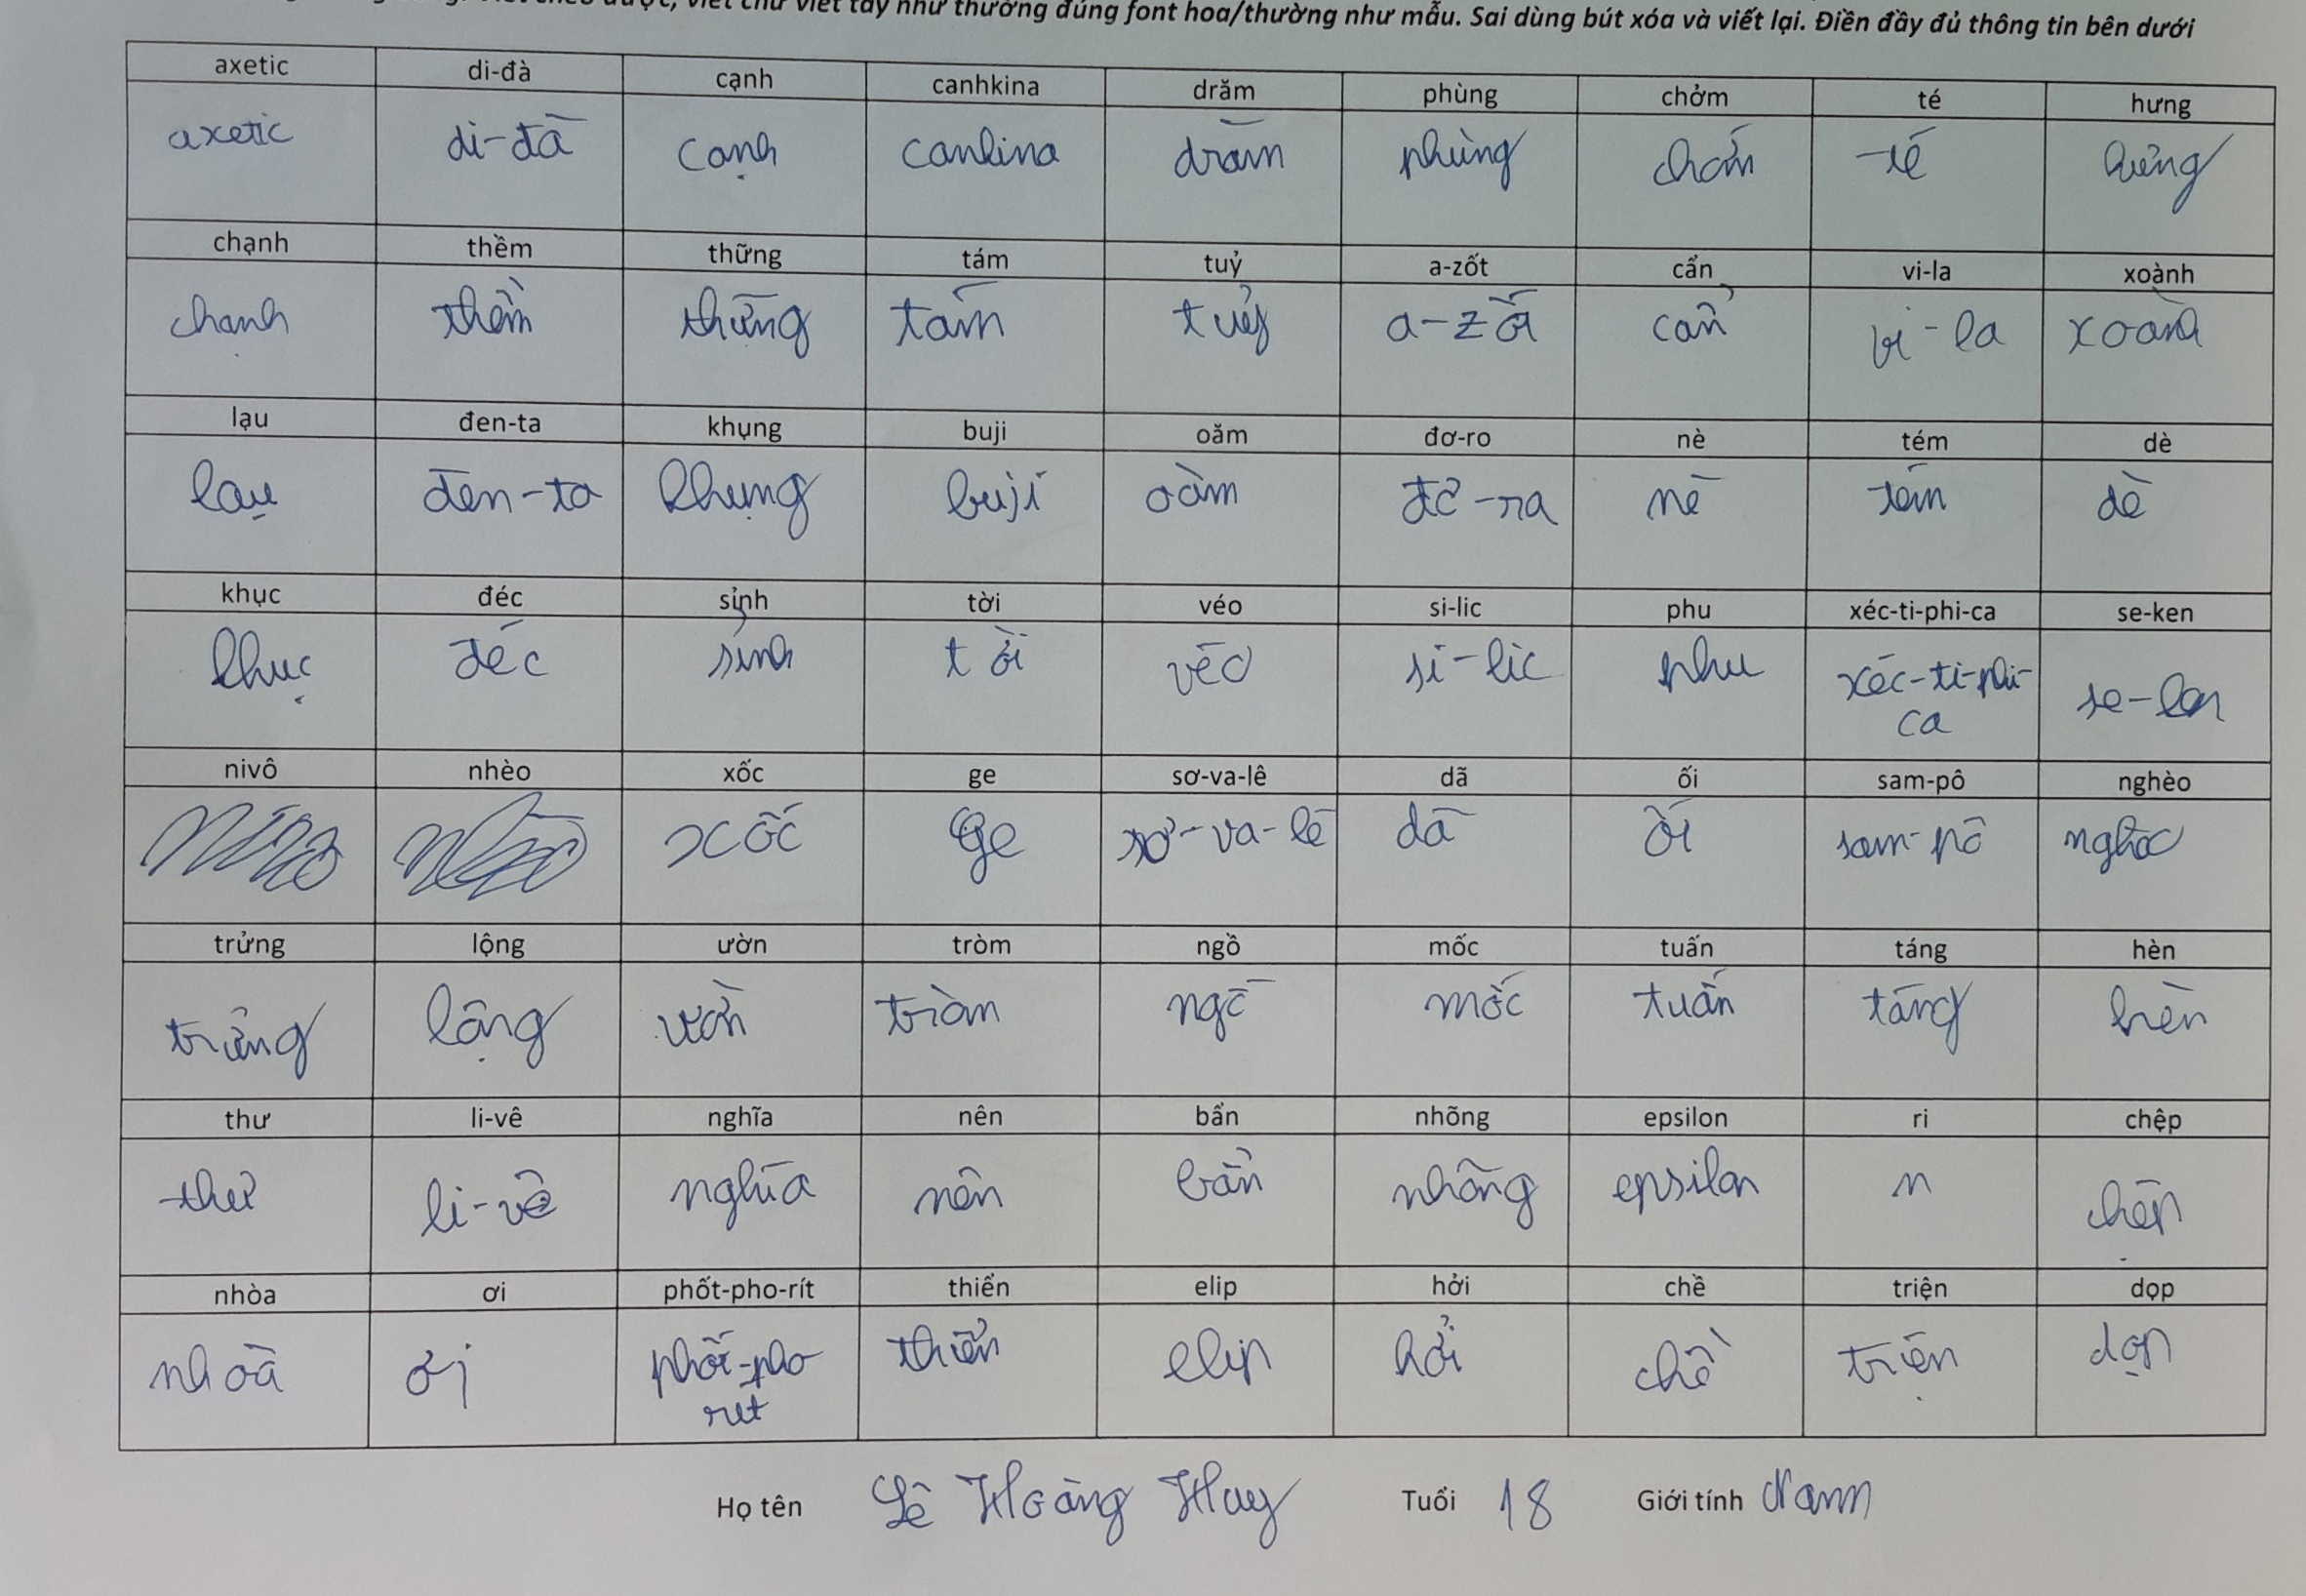 viết chữ viết tay như thường đúng font hoa/thường như mẫu. Sai dùng bút xóa và viết lại. Điền đầy đủ thông tin bên dưới
axetic di-đà cạnh canhkina drăm phùng chởm té hưng
axetic di-đà cạnh cankina drăm phùng chớm té hưng
chạnh thềm thững tám tuỷ a-zốt cẩn vi-la xoành
chạnh thềm thững tám tuỷ a-zốt cẩn vi-la xoành
lạu đen-ta khụng buji oăm đơ-ro nè tém dè
lạu đen-ta khụng buji oăm đơ-ra nè tém dè
khục đéc sỉnh tời véo si-lic phu xéc-ti-phi-ca se-ken
khục đéc sỉnh tời véo si-lic phu xéc-ti-phi-
ca se-ken
nivô nhèo xốc ge sơ-va-lê dã ối sam-pô nghèo
xốc ge sơ-va-lê dã ối sam-pô nghèo
trửng lộng ườn tròm ngồ mốc tuấn táng hèn
trửng lộng ườn tròm ngồ mốc tuấn táng hèn
thư li-vê nghĩa nên bẩn nhõng epsilon ri chệp
thư li-vê nghĩa nên bẩn nhõng epsilon ri chệp
nhòa ơi phốt-pho-rít thiển elip hởi chề triện dọp
nhoà ơi phốt-pho thiển elip hởi chề triện dọp
rit
Họ tên Lê Hoàng Huy Tuổi 18 Giới tính Nam